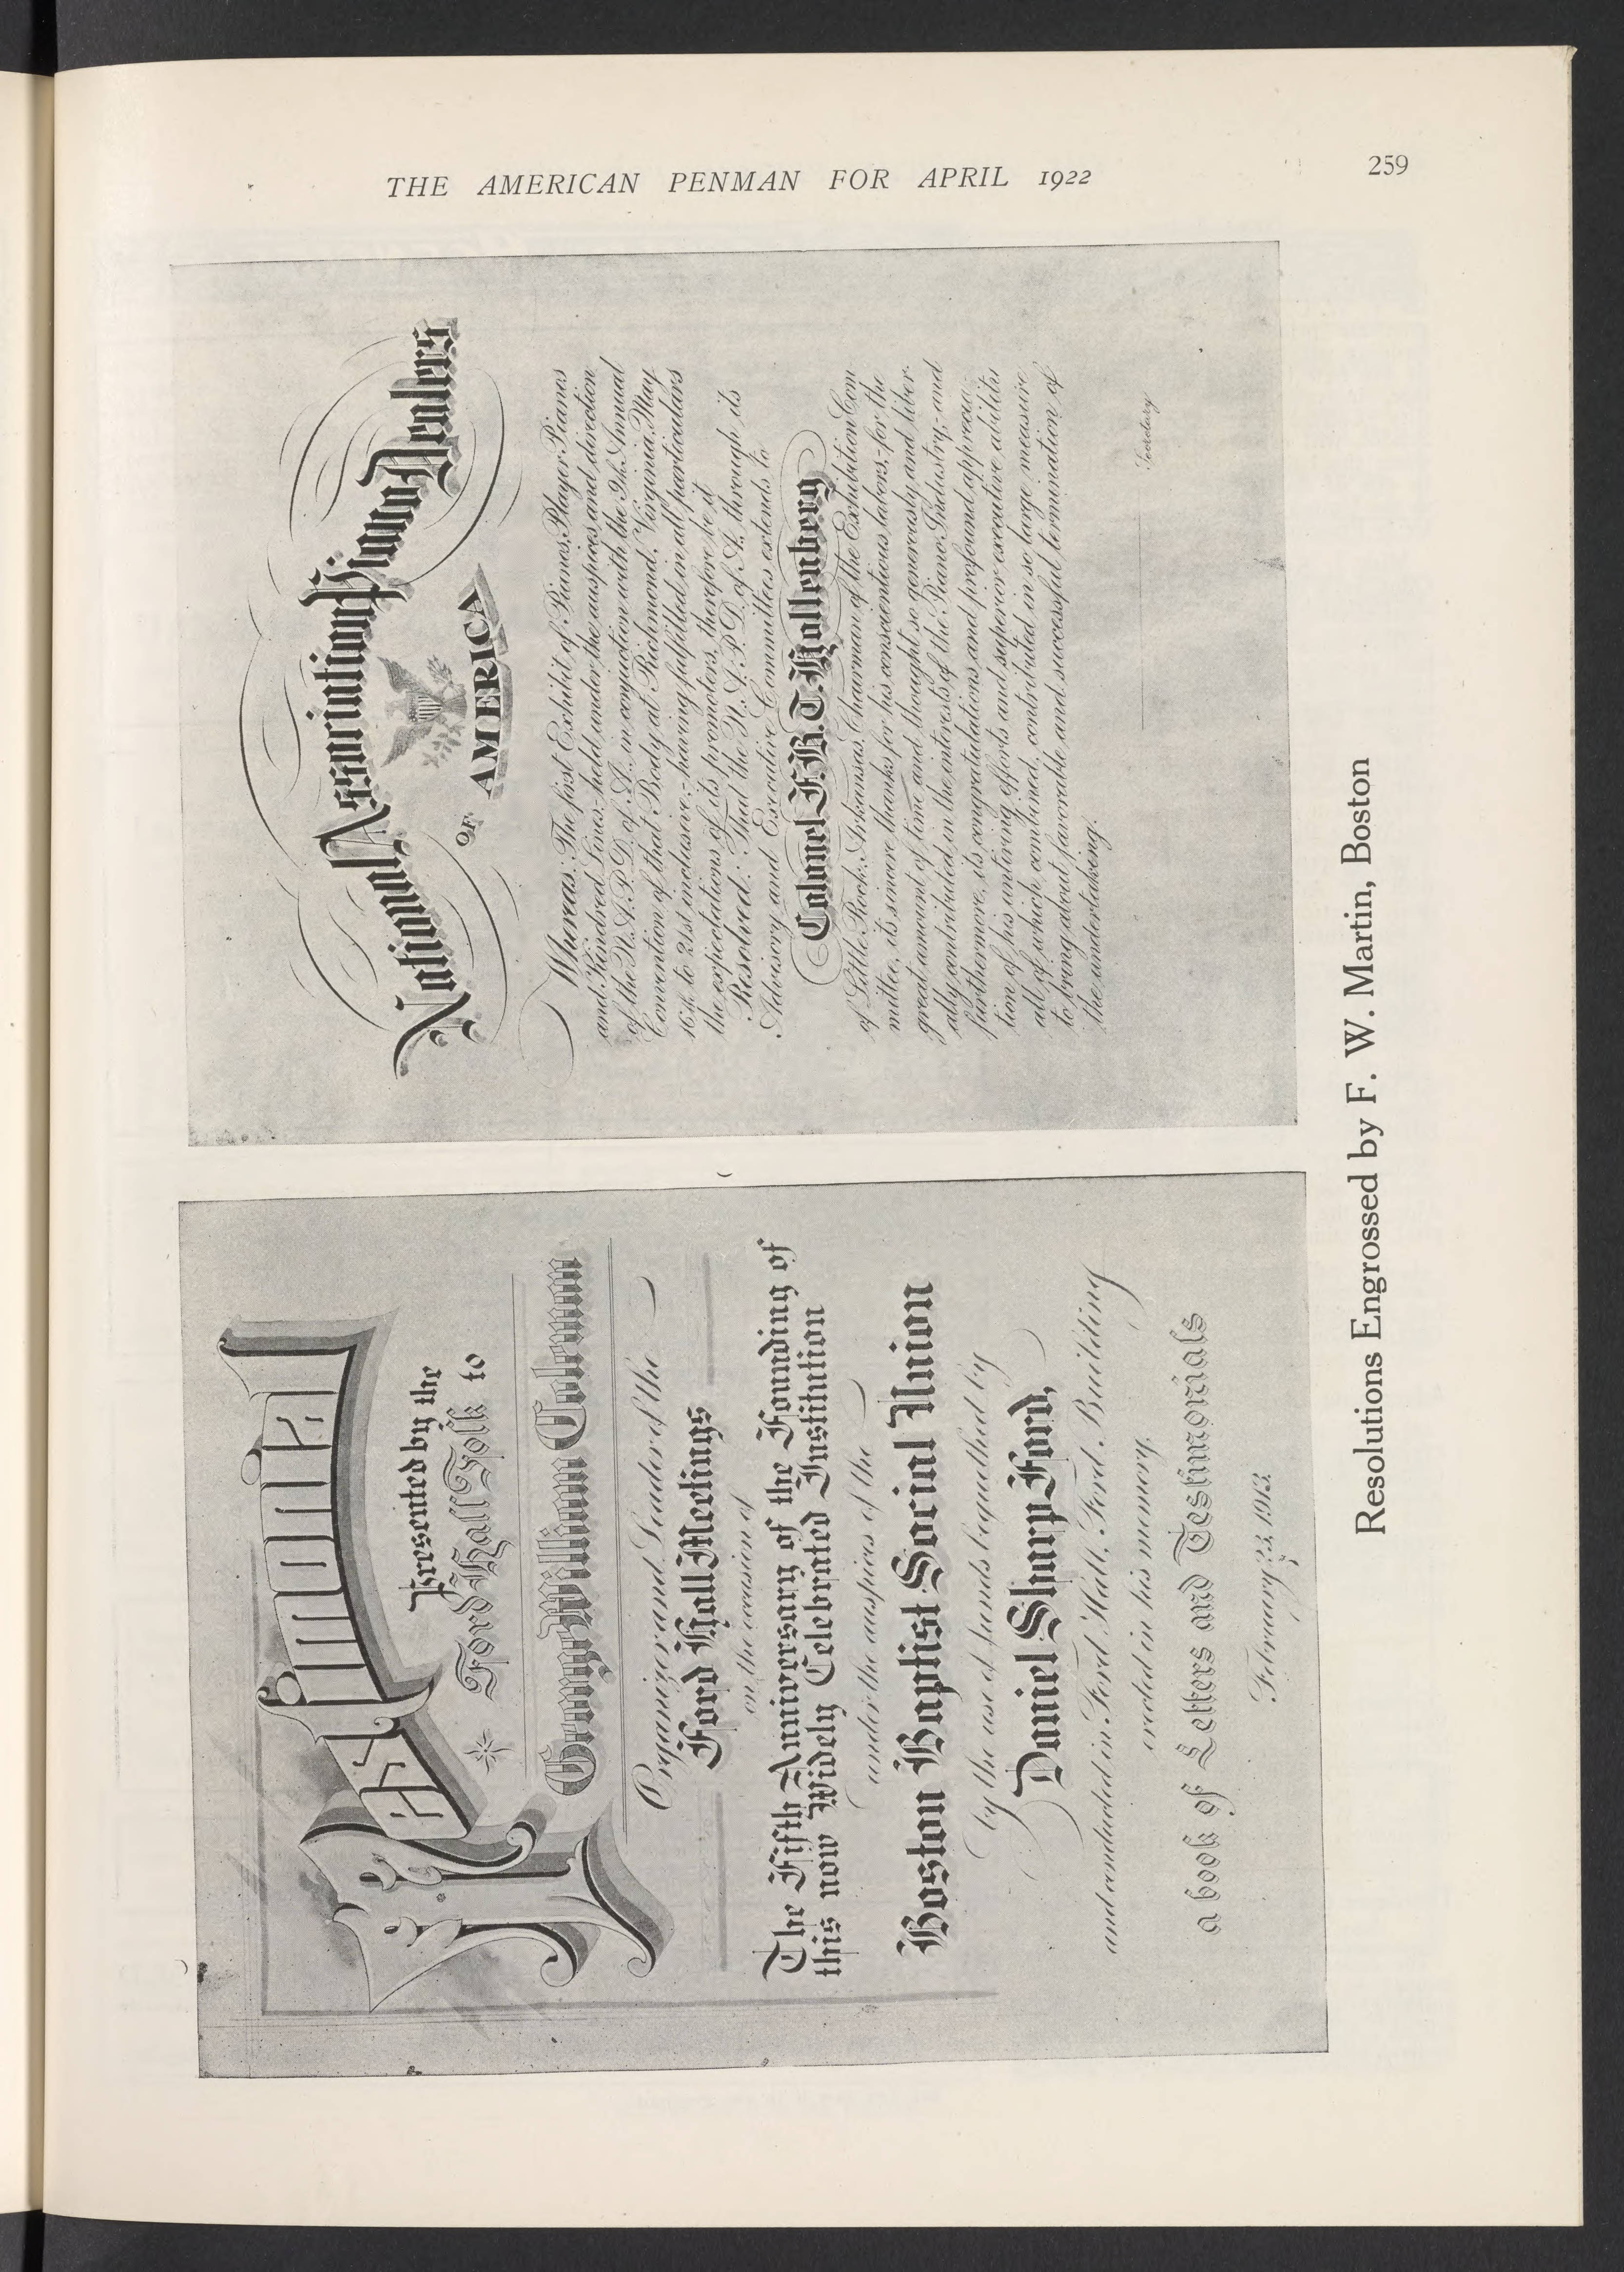 THE AMERICAN PENMAN FOR APRIL 1922
259
Testimonial
Presented by the
Ford Hall Folk to
George William Coleman
Organizer and Leader of the
Ford Hall Meetings
on the occasion of
The Fifth Anniversary of the Founding of
this now Widely Celebrated Institution
under the auspices of the
Boston Baptist Social Union
by the use of funds bequeathed by
Daniel Sharp Ford,
and conducted in Ford Hall, Ford Building
erected in his memory.
a book of Letters and Testimonials
February 23, 1913.
National Association Piano Dealers
OF AMERICA
Whereas: The first Exhibit of Pianos, Player Pianos
and Kindred Lines,- held under the auspices and direction
of the N.A.P.D. of A., in conjuction with the 9th Annual
Convention of that Body at Richmond, Virginia, May
16th to 21st inclusive,- having fulfilled in all particulars
the expectations of its promoters, therefore be it
Resolved: That the N.A.P.D. of A., through its
Advisory and Executive Committes extends to
Colonel F.B.T. Hollenberg
of Little Rock, Arkansas, Chairman of the Exhibition Com
mittee, its sincere thanks for his conscientious labors,- for the
great amount of time and thought so generously and liber-
ally contributed in the interests of the Piano Industry,- and
furthermore, its congratulations and profound apprecia-
tion of his untiring efforts and superior executive abilities
all of which combined, contributed in so large measure
to bring about favorable and successful termination of
the undertaking.
Secretary
Resolutions Engrossed by F. W. Martin, Boston